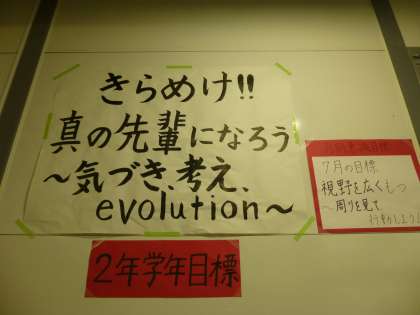 きらめけ!!
真の先輩になろう
〜気づき、考え、
evolution〜
2年学年目標
7月の目標
視野を広くもつ
〜周りを見て
行動しよう〜